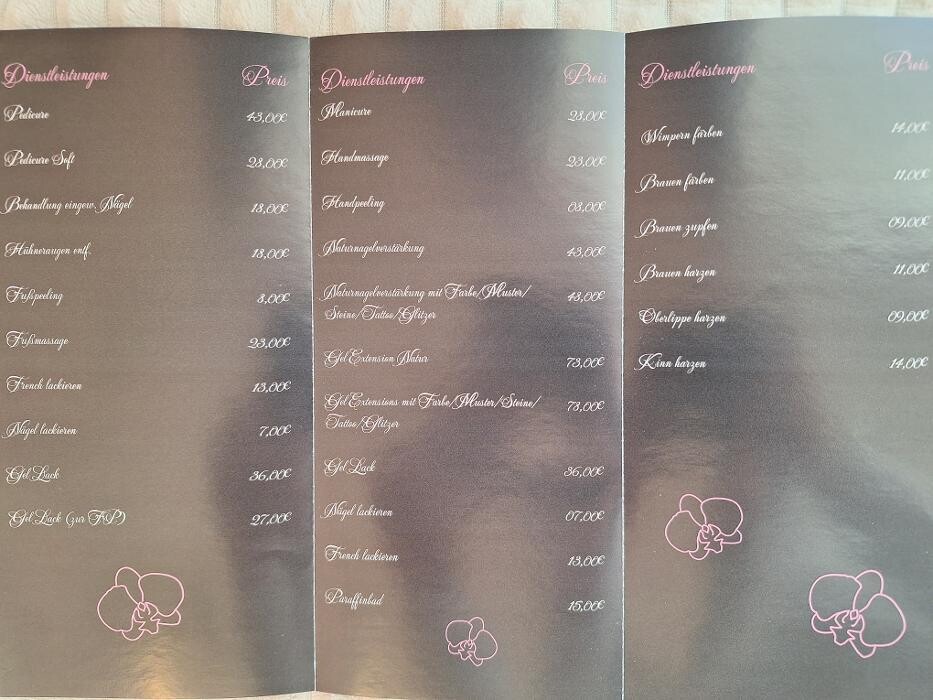 Dienstleistungen Preis
Pedicure 43,00€
Pedicure Soft 28,00€
Behandlung eingew. Nägel 18,00€
Hühneraugen entf. 18,00€
Fußpeeling 8,00€
Fußmassage 23,00€
French lackieren 13,00€
Nägel lackieren 7,00€
Gel Lack 36,00€
Gel Lack (zur FP) 27,00€
Dienstleistungen Preis
Manicure 28,00€
Handmassage 23,00€
Handpeeling 08,00€
Naturnagelverstärkung 43,00€
Naturnagelverstärkung mit Farbe/Muster/ 48,00€
Steine/Tattoo/Glitzer
Gel Extension Natur 73,00€
Gel Extensions mit Farbe/Muster/Steine/ 78,00€
Tattoo/Glitzer
Gel Lack 36,00€
Nägel lackieren 07,00€
French lackieren 13,00€
Paraffinbad 15,00€
Dienstleistungen Preis
Wimpern färben 14,00€
Brauen färben 11,00€
Brauen zupfen 09,00€
Brauen harzen 11,00€
Oberlippe harzen 09,00€
Kinn harzen 14,00€